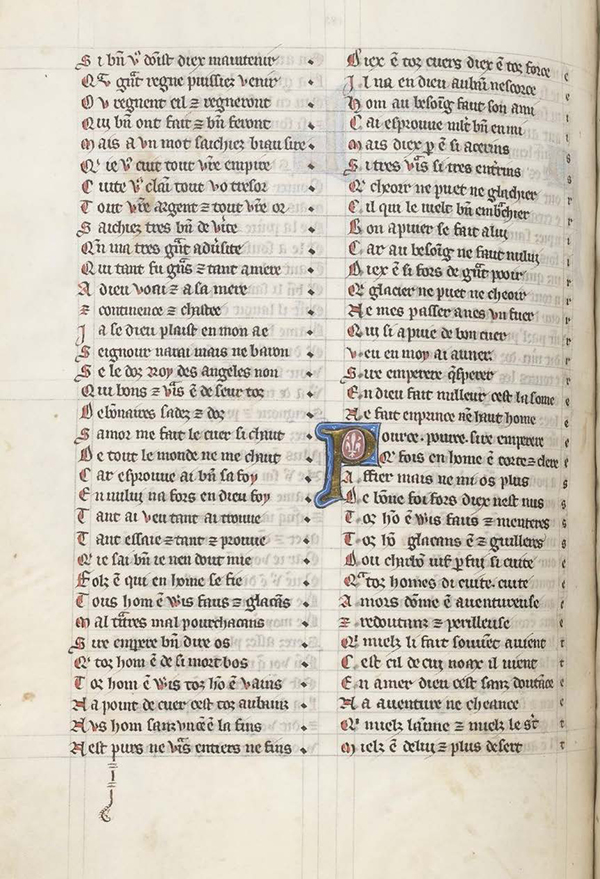 Si bñ v9 doist diex maintenir
Qa gñt regne puissiez venir
Ou regnent cil z regneront
Qui bñ ont fait z bñ feront
Mais a vn mot saichiez biau sire
Q̃ ie vr̃ cuit tout vr̃e empire
Cuite vr̃ claĩ tout vo tresor
Tout vr̃e argent z tout vr̃e or
Saichiez tres bñ de vr̃te
Qñ ma tres gñt aduersite
Qui tant fu gñs z tant amere
A dieu voai z a sa mere
z continence z chastee
Ja se dieu plaist en mon ae
Seignour narai mais ne baron
Se le doz Roy des angeles non
Qui bons z vrais ẽ de seur toz
Debõnaires sadez z doz
Samor me fait le cuer si chaut
De tout le monde ne me chaut
Car esprouue ai bñ sa foy
En nului na fors en dieu foy
Tant ai veu tant ai trouue
Tant essaie z tant z prouue
Q̃ ie sai bñ ie nen dout mie
Folz ẽ qui en home se fie
Tous hom ẽ wis faus z glacãs
Mal tãtres mal pourchacans
Sire emperere bñ dire os
Q̃ toz hom ẽ de si mort bos
Toz hom ẽ wis toz hõ ẽ vains
Na point de cuer cest toz aubuinz
Nus hom sanz
Nest purs ne vrais entiers ne fins
Diex ẽ toz cuers diex ẽ toz force e
Il na en dieu aubun nescorce e
Hom au besoing faut son ami i
Cai esprouue mlt bñ en mi i
Mais diex p ẽ si acerins s
Si tres vrais si tres entrins s
Q̃ cheoir ne puet ne glachier r
Cil qui le uielt bñ embrachier r
Bon apuier se fait a lui i
Car au besoing ne faut nului i
Diex ẽ si fors de gñt pooir r
Q̃ glacier ne puet ne cheoir r
Ne mes passer anes vn fuer r
Qui si apuie de bon cuer r
veu en moy ai auner r
Sire emperere qesperer r
En dieu fait milleur cest la some e
Ne fait en prince nen haut home e
Pource pource sire emperere e
Q̃ fois en home ẽ torte z clere e
Affier mais ne mi os plus s
De bõne foi fors diex nest nus s
Toz hõ ẽ wis faus z menteres s
Toz hõ glacans ẽ z guilleres s
Dou charbõ
Qa toz homes di cuite cuite e
Amors dõme ẽ auentureuse e
z redoutanz z perilleuse e
Q̃ mielz li fait souuet auient t
Cest cil de cui noax il uient t
En amer dieu cest sanz doutãce e
Na auenture ne cheance e
Q̃ mielz laime z mielz le st t
Mielz ẽ de lui z plus desert t